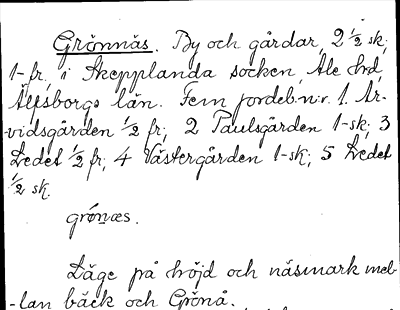 Grönnäs. By och gårdar, 2 1/2 sk,
1-fr, i Skepplanda socken, Ale hrd,
Älfsborgs län. Fem jordeb.n:r. 1. Ar-
vidsgården 1/2 fr; 2 Paulsgården 1-sk; 3
Ledet 1/2 fr; 4 Västergården 1-sk; 5 Ledet
1/2 sk.
grónæs.
Läge på höjd och näsmark mel-
-lan bäck och Grönå.